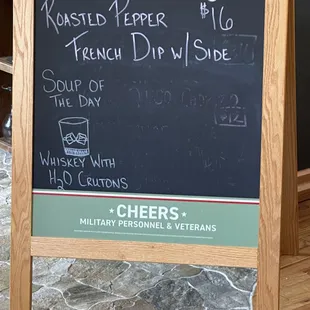 Roasted Pepper $16
French Dip w/ Side
Soup of
The Day
Whiskey With
H2O Crutons
★ CHEERS ★
MILITARY PERSONNEL & VETERANS